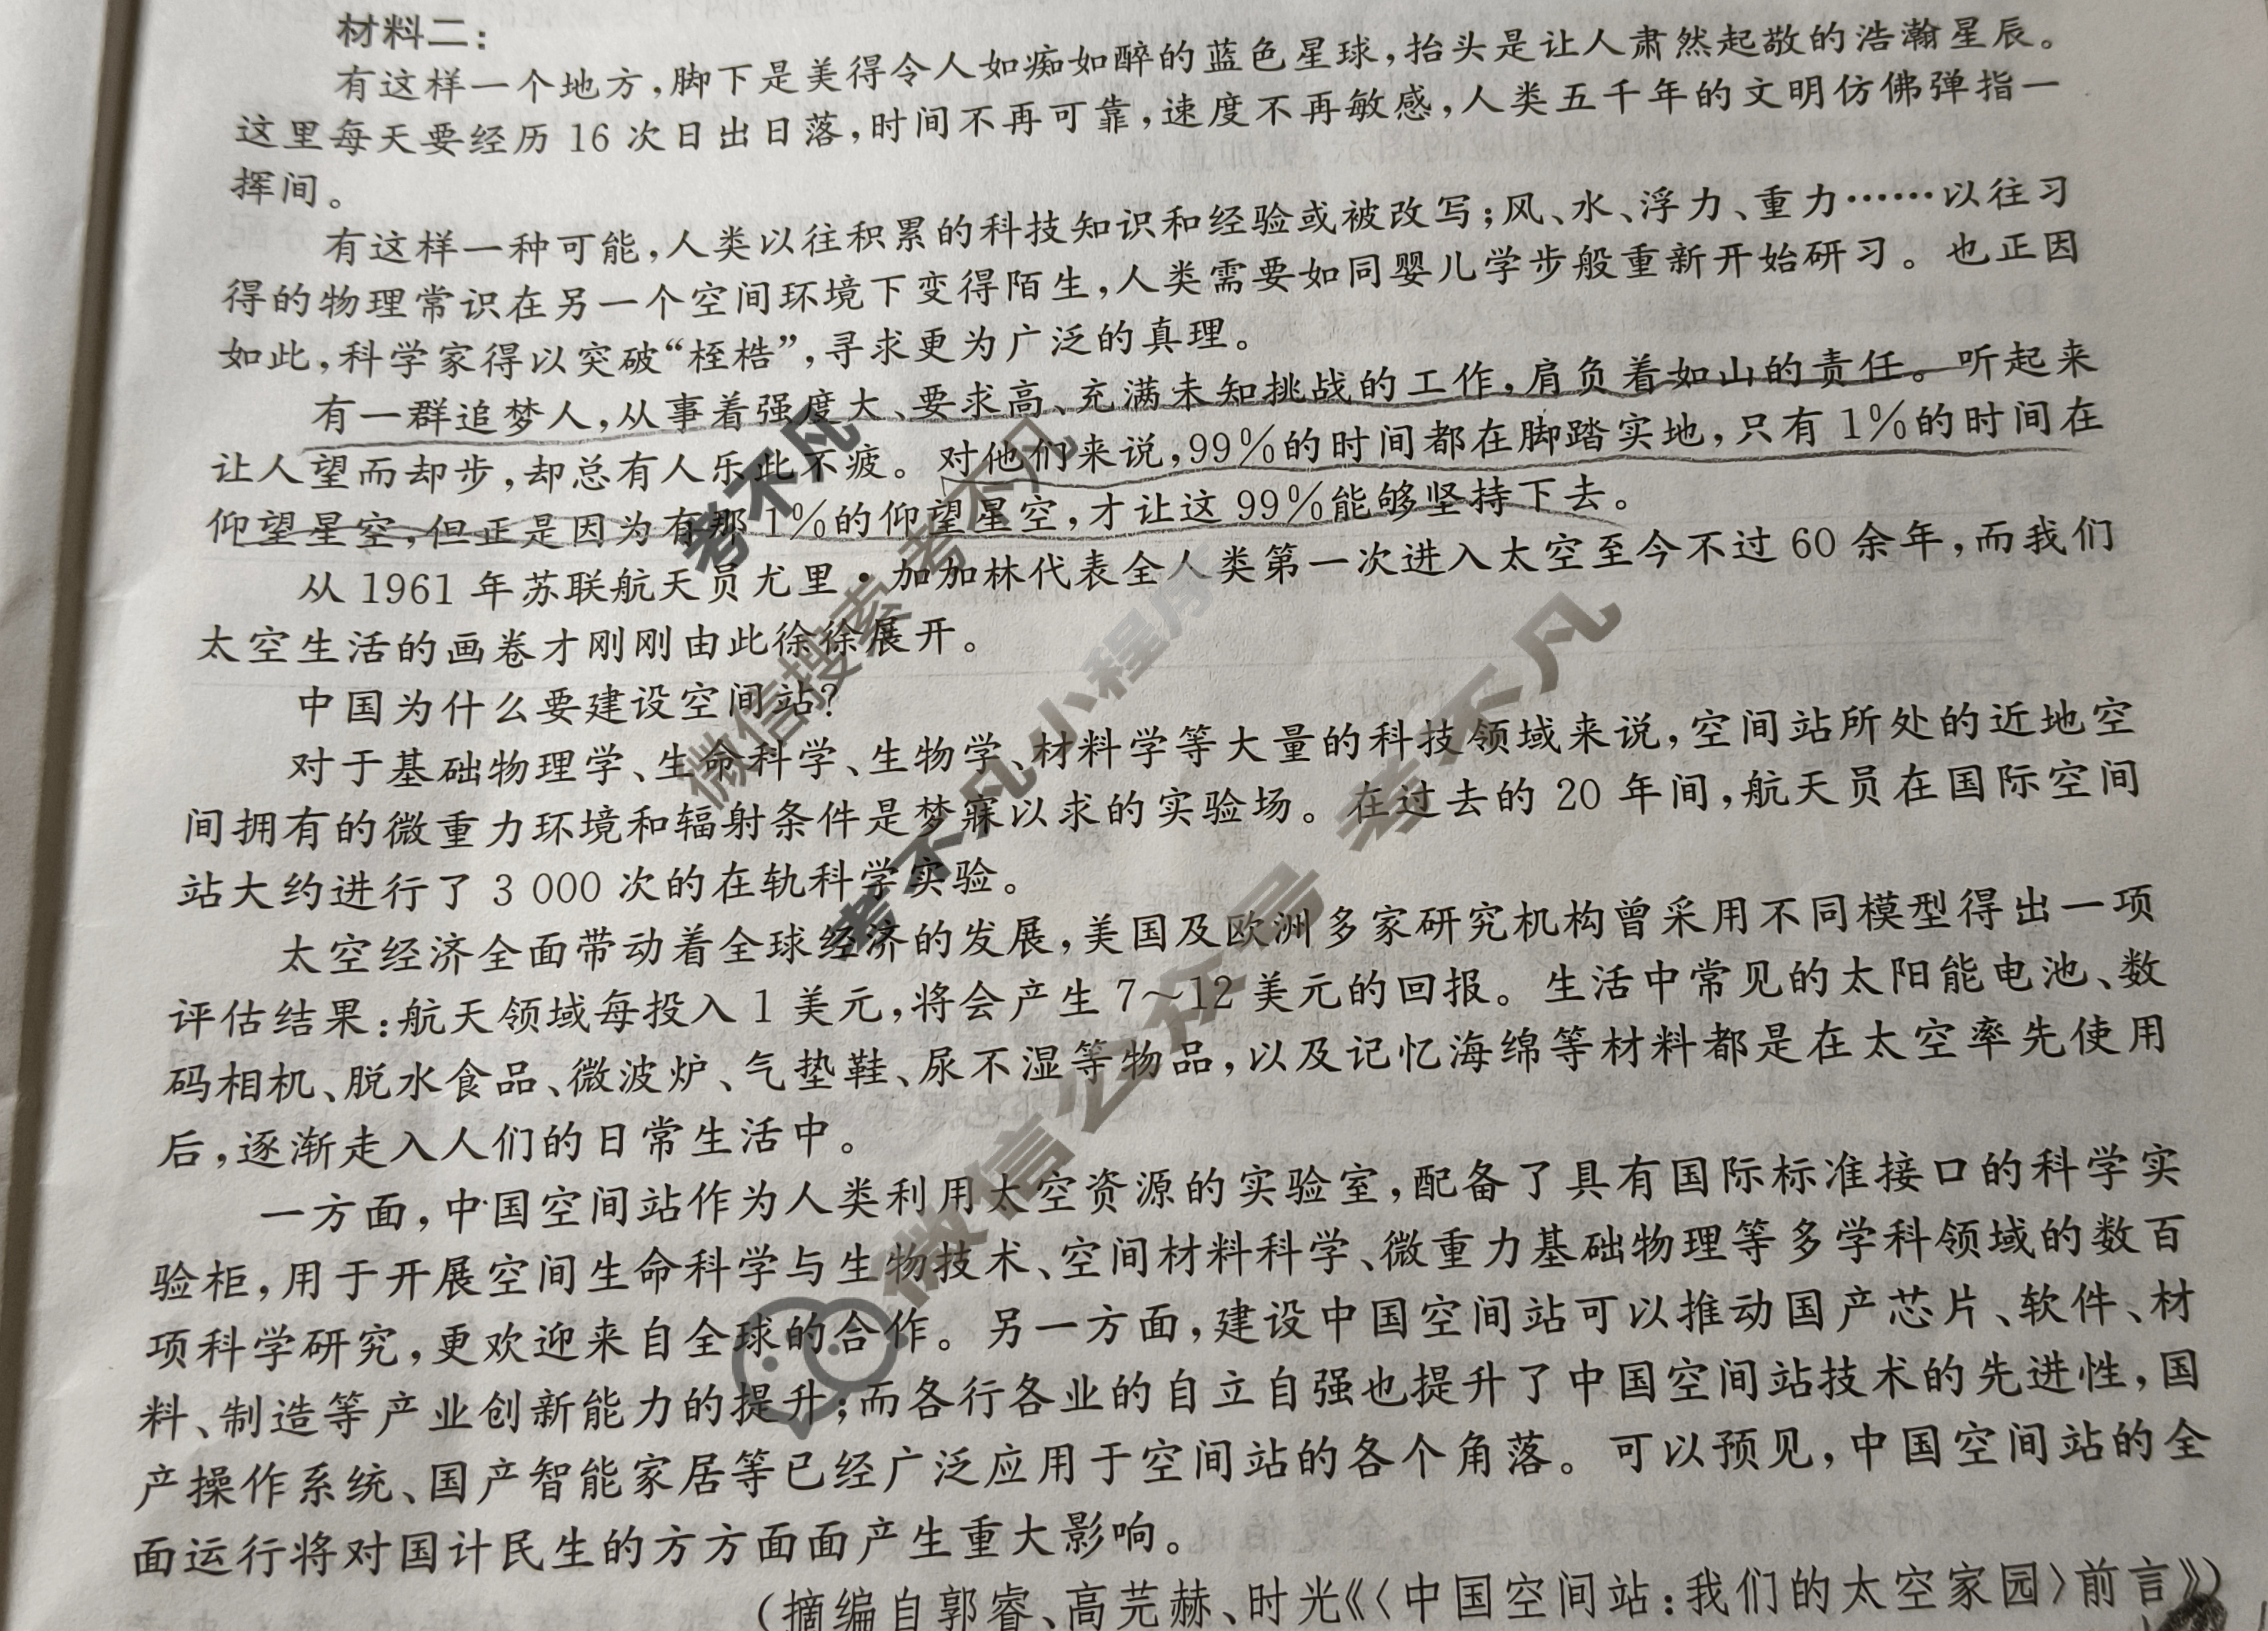 材料二：
有这样一个地方，脚下是美得令人如痴如醉的蓝色星球，抬头是让人肃然起敬的浩瀚星辰。
这里每天要经历 16 次日出日落，时间不再可靠，速度不再敏感，人类五千年的文明仿佛弹指一
挥间。
有这样一种可能，人类以往积累的科技知识和经验或被改写；风、水、浮力、重力……以往习
得的物理常识在另一个空间环境下变得陌生，人类需要如同婴儿学步般重新开始研习。也正因
如此，科学家得以突破“桎梏”，寻求更为广泛的真理。
有一群追梦人，从事着强度大、要求高、充满未知挑战的工作，肩负着如山的责任。听起来
让人望而却步，却总有人乐此不疲。对他们来说，99%的时间都在脚踏实地，只有 1%的时间在
仰望星空，但正是因为有那 1%的仰望星空，才让这 99%能够坚持下去。
从 1961 年苏联航天员尤里·加加林代表全人类第一次进入太空至今不过 60 余年，而我们
太空生活的画卷才刚刚由此徐徐展开。
中国为什么要建设空间站？
对于基础物理学、生命科学、生物学、材料学等大量的科技领域来说，空间站所处的近地空
间拥有的微重力环境和辐射条件是梦寐以求的实验场。在过去的 20 年间，航天员在国际空间
站大约进行了 3 000 次的在轨科学实验。
太空经济全面带动着全球经济的发展，美国及欧洲多家研究机构曾采用不同模型得出一项
评估结果：航天领域每投入 1 美元，将会产生 7～12 美元的回报。生活中常见的太阳能电池、数
码相机、脱水食品、微波炉、气垫鞋、尿不湿等物品，以及记忆海绵等材料都是在太空率先使用
后，逐渐走入人们的日常生活中。
一方面，中国空间站作为人类利用太空资源的实验室，配备了具有国际标准接口的科学实
验柜，用于开展空间生命科学与生物技术、空间材料科学、微重力基础物理等多学科领域的数百
项科学研究，更欢迎来自全球的合作。另一方面，建设中国空间站可以推动国产芯片、软件、材
料、制造等产业创新能力的提升；而各行各业的自立自强也提升了中国空间站技术的先进性，国
产操作系统、国产智能家居等已经广泛应用于空间站的各个角落。可以预见，中国空间站的全
面运行将对国计民生的方方面面产生重大影响。
（摘编自郭睿、高芫赫、时光《〈中国空间站：我们的太空家园〉前言》）
考不凡
微信搜索 考不凡
考不凡小程序
微信公众号 考不凡